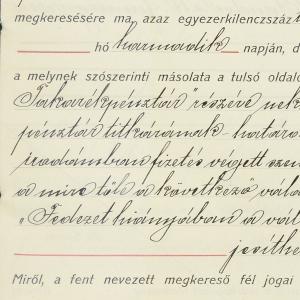 megkeresésére ma, azaz egyezerkilenczszáz
hó harmadik napján, d
a melynek szószerinti másolata a tulsó oldalo
Takarékpénztár" részére nek
pénztár titkárának - határo
irodámban fizetés végett szem
a mire tőle a következő vála
"Fedezet hiányában a vál
jesíthe
Miről, a fent nevezett megkereső fél jogai